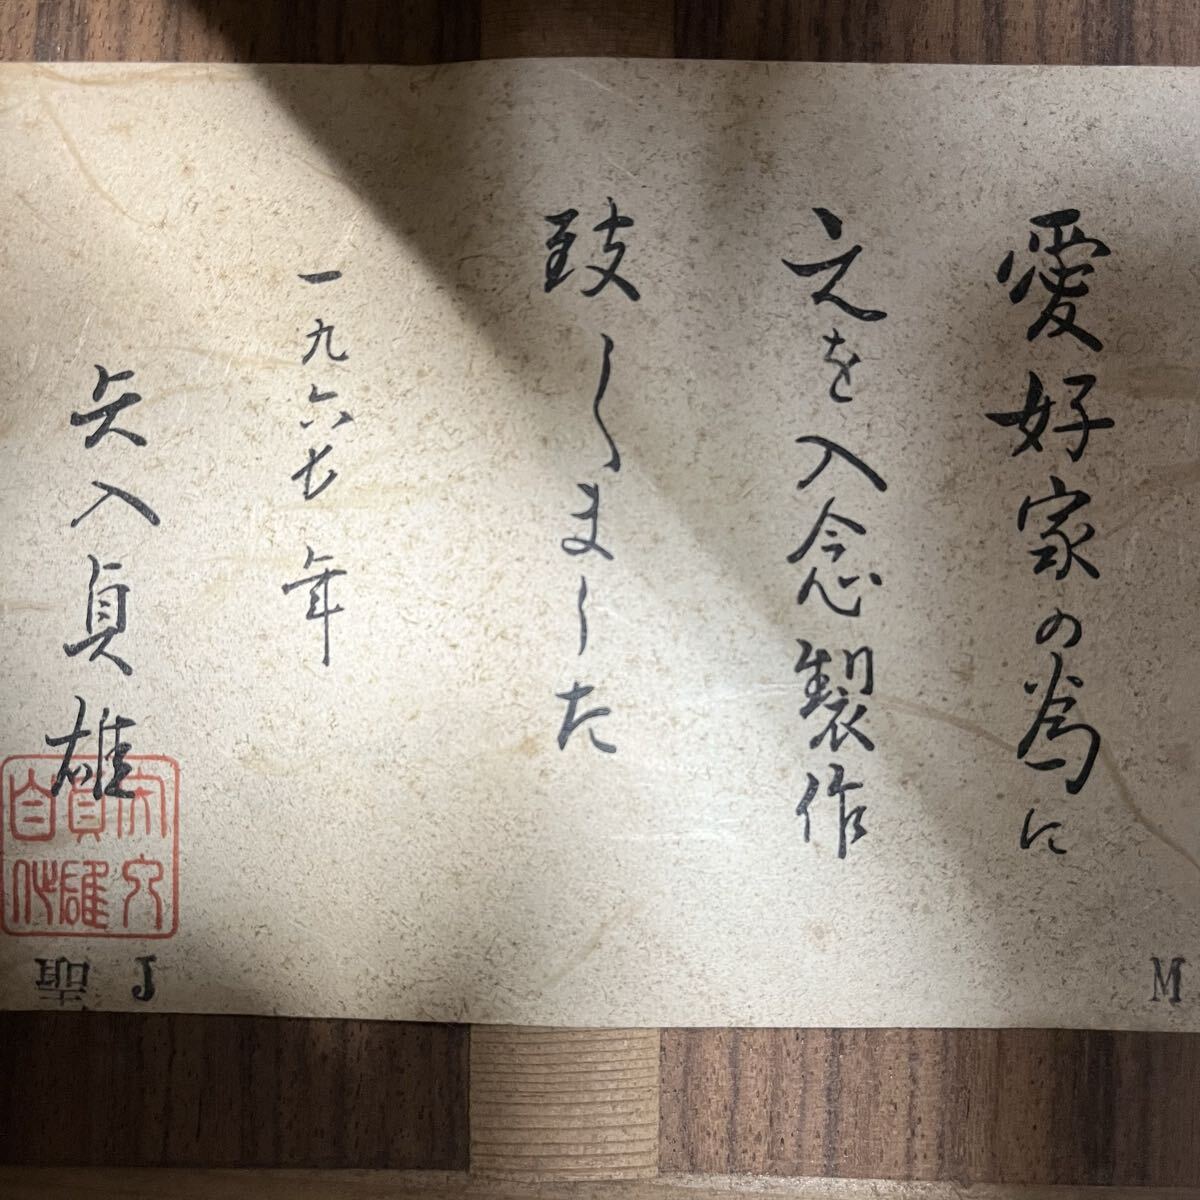 愛好家の為に
之を入念製作
致しました
一九六七年
矢入貞雄
J
M